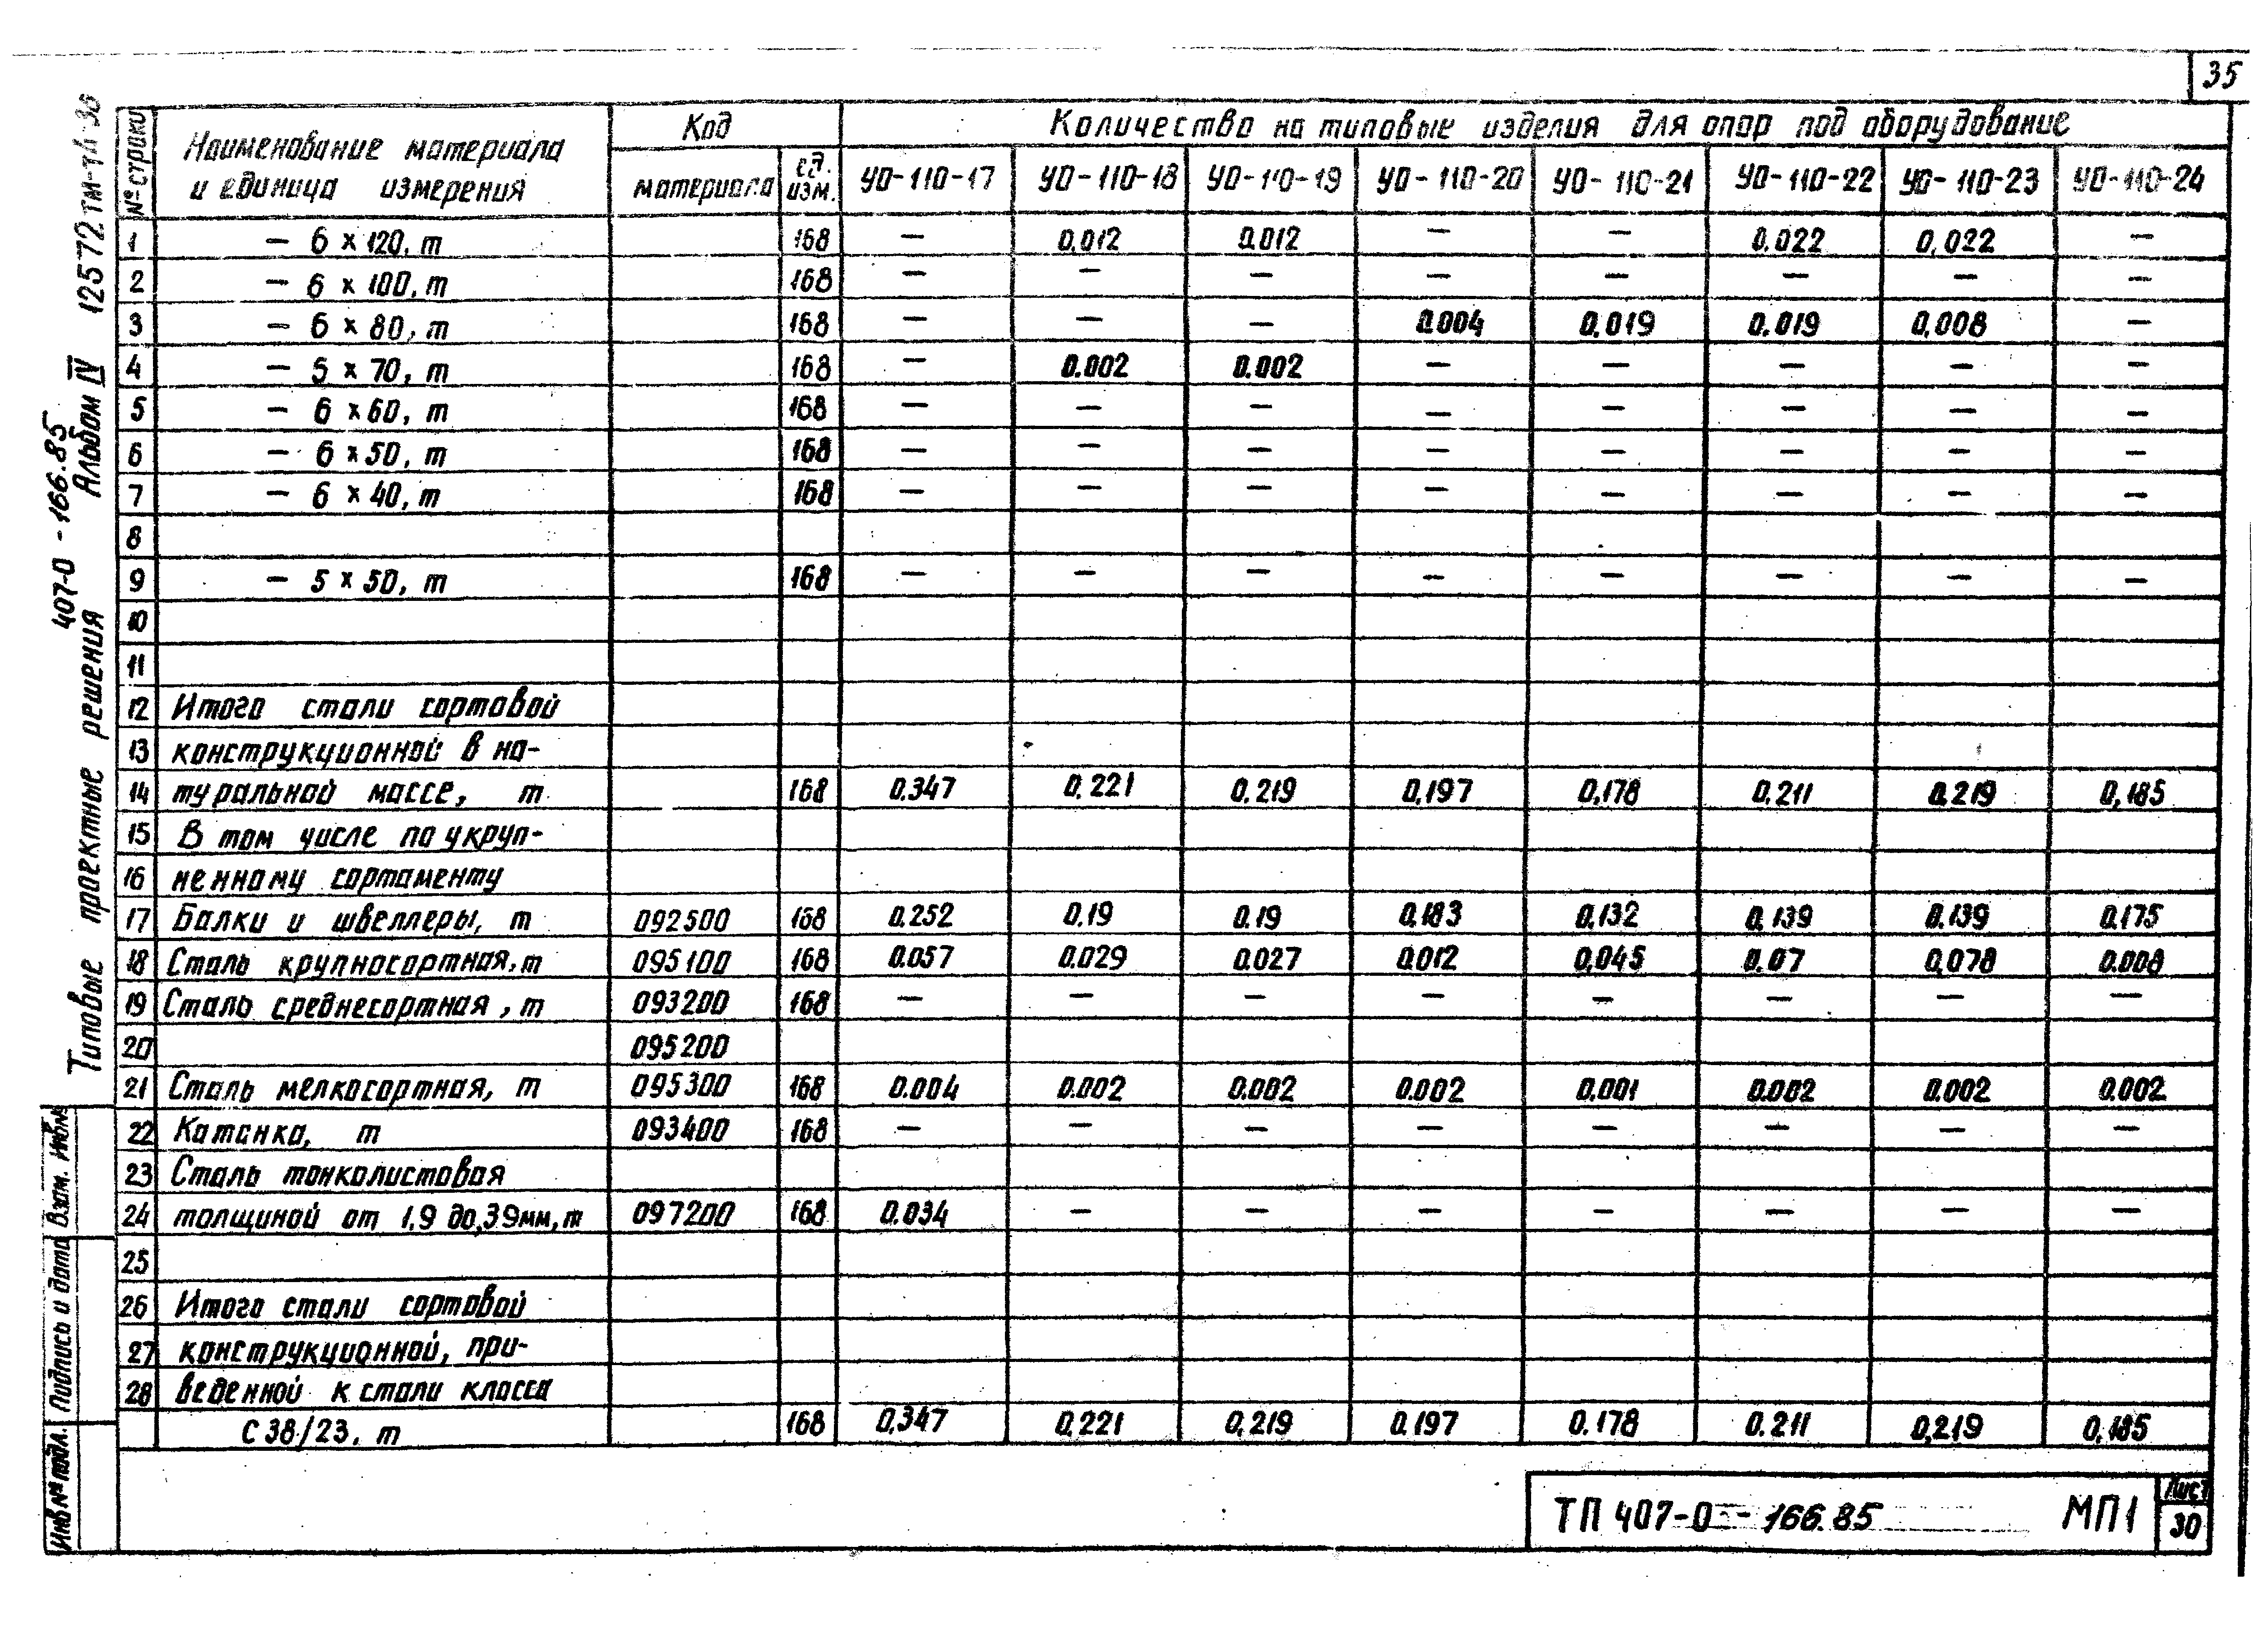 35
№ строки Наименование материала и единица измерения Код Количество на типовые изделия для опор под оборудование
материала ед. изм. УО-110-17 УО-110-18 УО-110-19 УО-110-20 УО-110-21 УО-110-22 УО-110-23 УО-110-24
1 – 6 × 120, т 168 – 0,012 0.012 – – 0.022 0,022 –
2 – 6 × 100, т 168 – – – – – – – –
3 – 6 × 80, т 168 – – – 0.004 0,019 0.019 0,008 –
4 – 5 × 70, т 168 – 0.002 0.002 – – – – –
5 – 6 × 60, т 168 – – – – – – – –
6 – 6 × 50, т 168 – – – – – – – –
7 – 6 × 40, т 168 – – – – – – – –
8
9 – 5 × 50, т 168 – – – – – – – –
10
11
12 Итого стали сортовой
13 конструкционной в на-
14 туральной массе, т 168 0.347 0,221 0.219 0,197 0,178 0,211 0.219 0,185
15 В том числе по укруп-
16 ненному сортаменту
17 Балки и швеллеры, т 092500 168 0.252 0,19 0.19 0.183 0,132 0,139 0.139 0.175
18 Сталь крупносортная, т 095100 168 0.057 0.029 0.027 0.012 0,045 0.07 0,078 0.008
19 Сталь среднесортная, т 093200 168 – – – – – – – –
20 095200
21 Сталь мелкосортная, т 095300 168 0.004 0.002 0.002 0.002 0.001 0.002 0.002 0.002
22 Катанка, т 093400 168 – – – – – – – –
23 Сталь тонколистовая
24 толщиной от 1,9 до,39мм, т 097200 168 0.034 – – – – – – –
25
26 Итого стали сортовой
27 конструкционной, при-
28 веденной к стали класса
С 38/23, т 168 0,347 0,221 0,219 0.197 0.178 0.211 0,219 0,185
ТП 407-0 - 166.85 МП1
Лист
30
Типовые проектные решения 407-0 - 166.85
Альбом IV 12572тм-т4
Взам. инв.№
Подпись и дата
Инв№ подл.